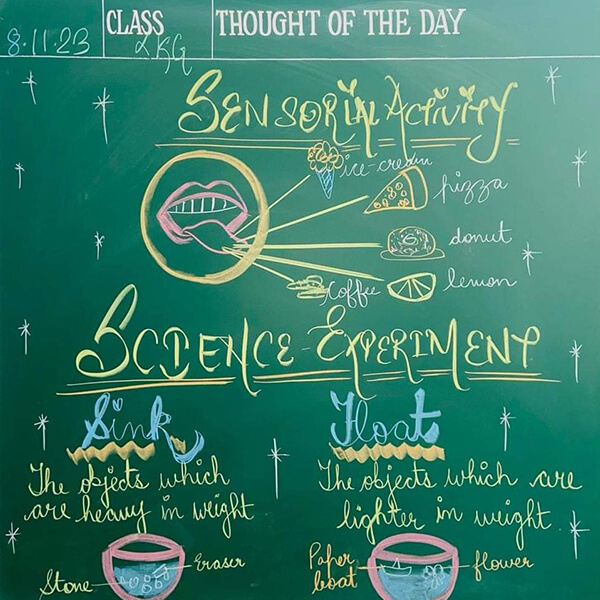 CLASS THOUGHT OF THE DAY
8.11.23 LKG
SENSORIAL ACTIVITY
ice-cream
pizza
donut
coffee lemon
SCIENCE-EXPERIMENT
Sink Float
The objects which The objects which are
are heavy in weight lighter in weight.
Stone Eraser Paper boat flower